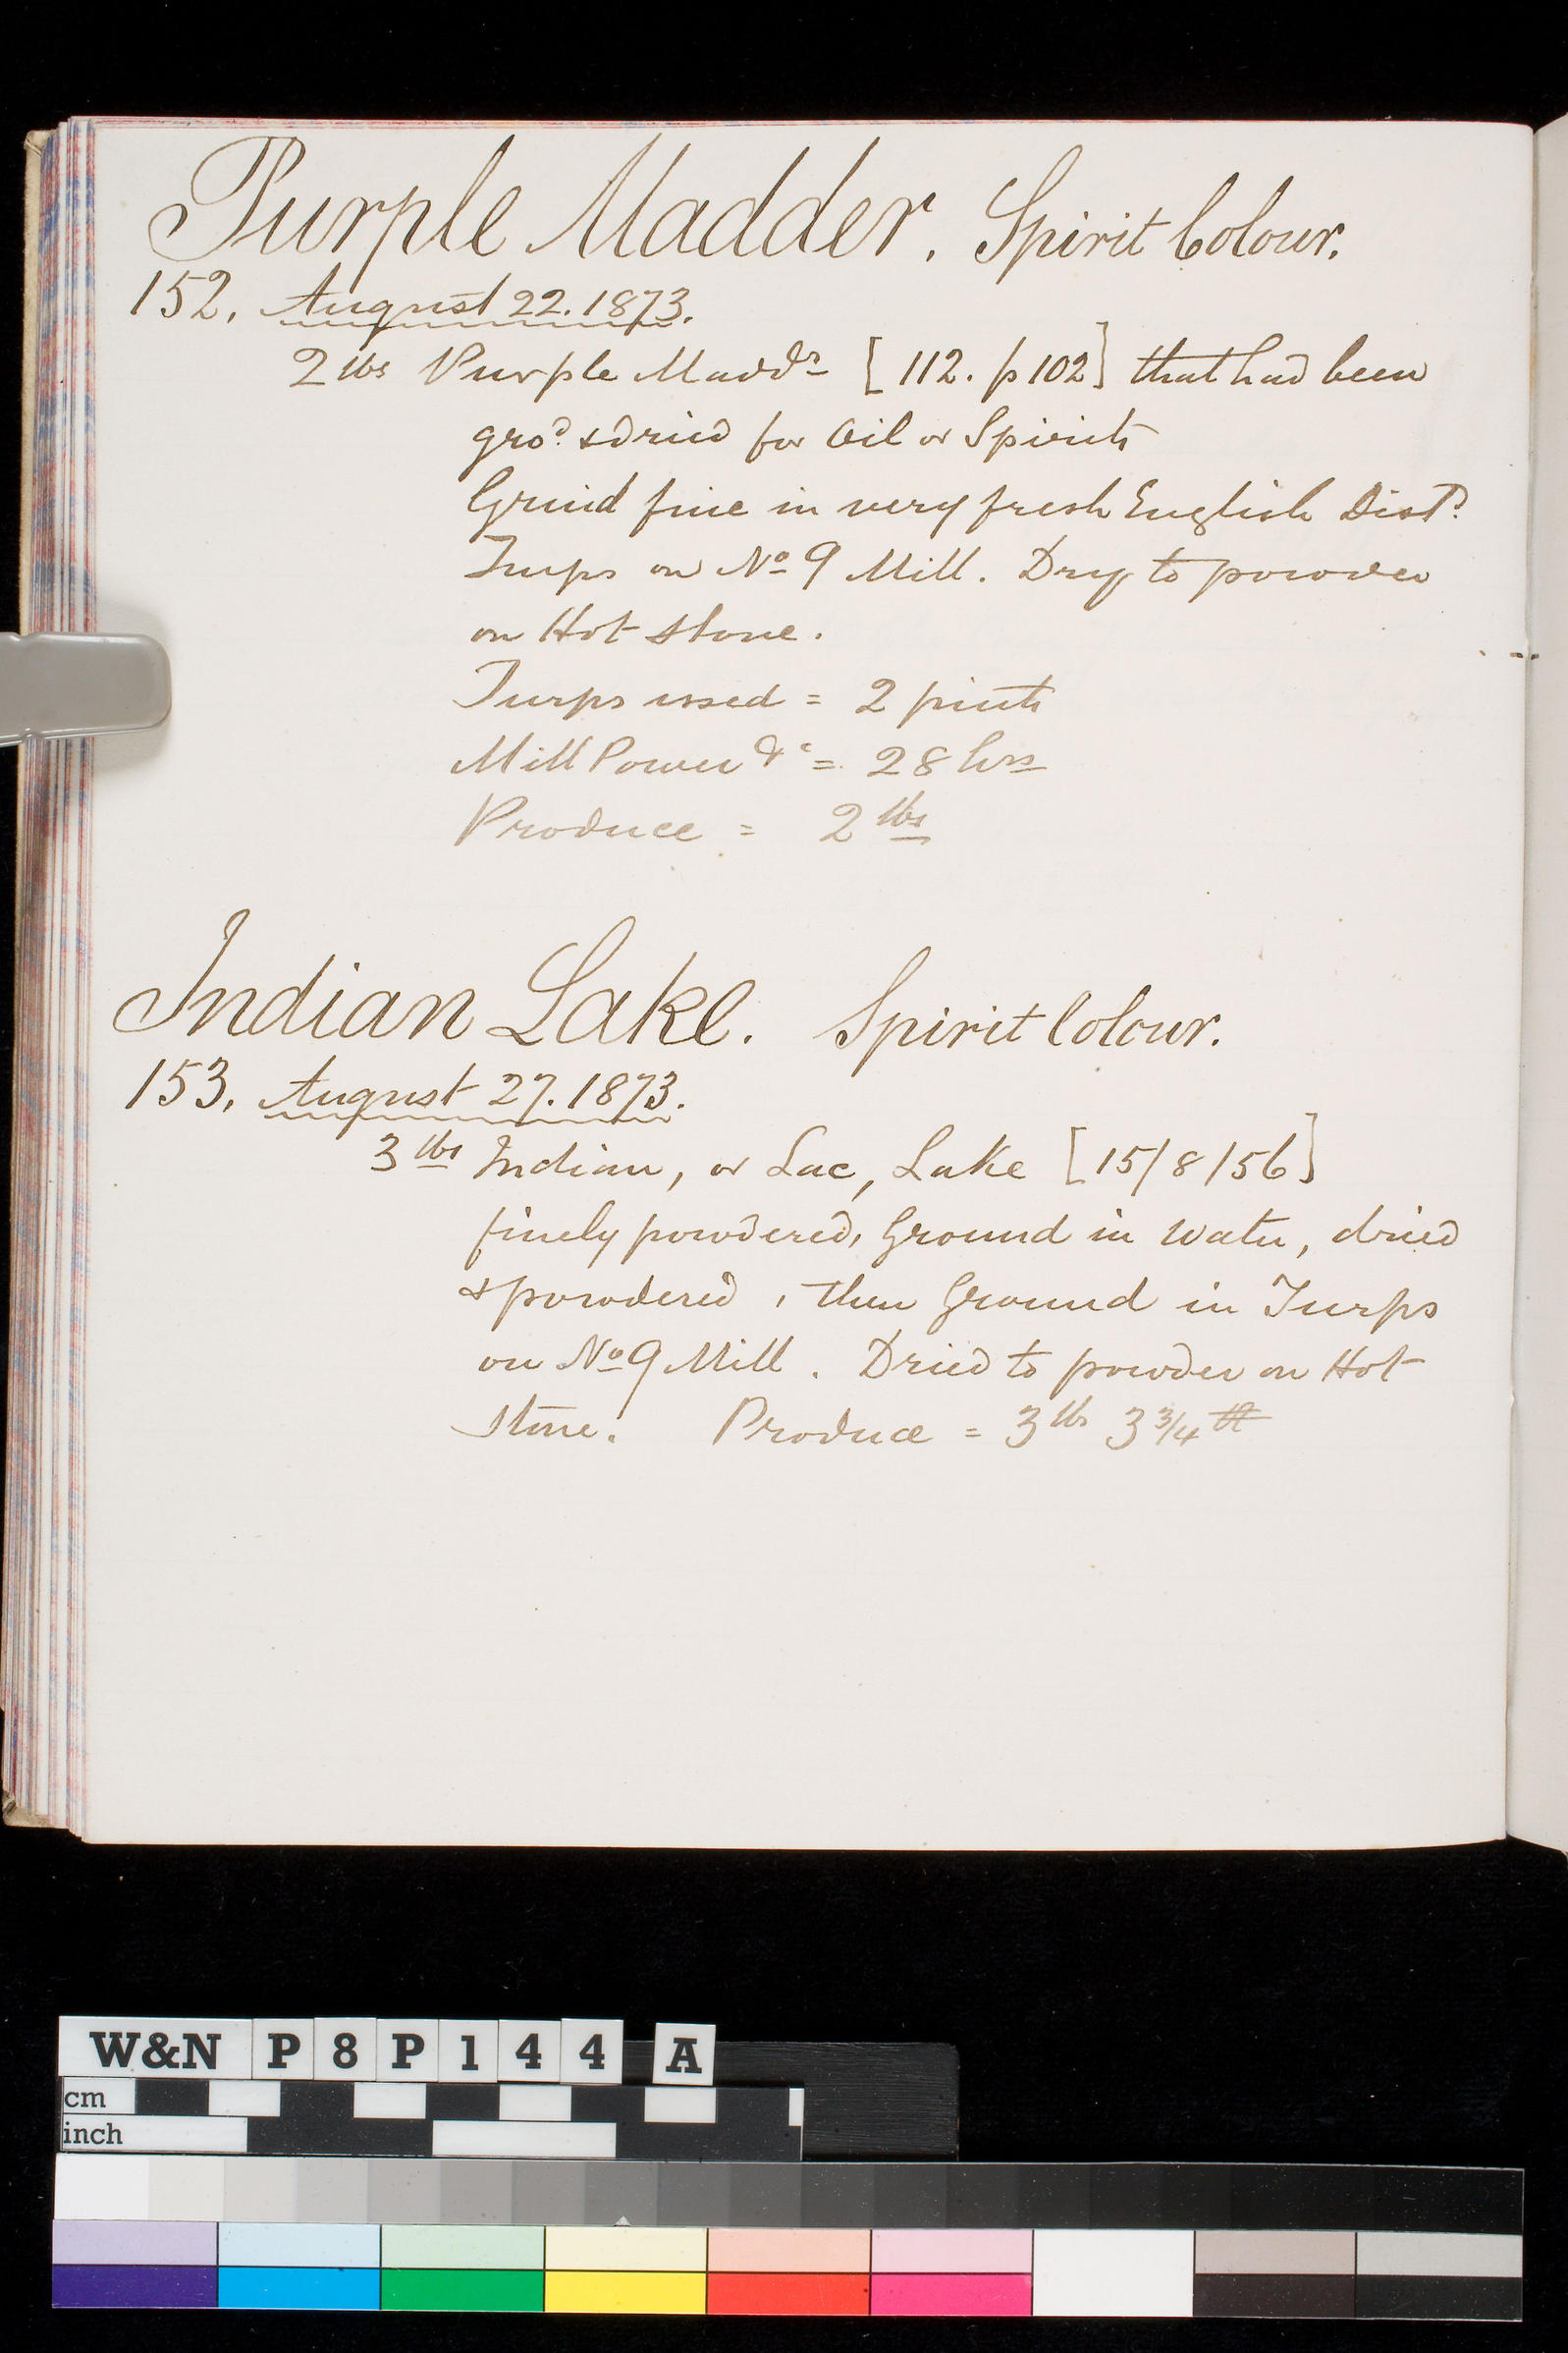 Purple Madder. Spirit Colour.
152. August 22. 1873.
2 lbs Purple Maddr [112. p 102] that had been
grod. & dried for Oil or Spirits
Grind fine in very fresh English Distd
Turps on No 9 Mill. Dry to powder
on Hot Stone.
Turps used = 2 pints
Mill Power &c = 28 hrs
Produce = 2 lbs
Indian Lake. Spirit Colour.
153. August 27. 1873.
3 lbs Indian, or Lac, Lake [15/8/56]
finely powdered, Ground in Water, dried
& powdered, then Ground in Turps
on No 9 Mill. Dried to powder on Hot
Stone. Produce = 3 lbs 3 3/4
W&N P8P144 A
cm
inch